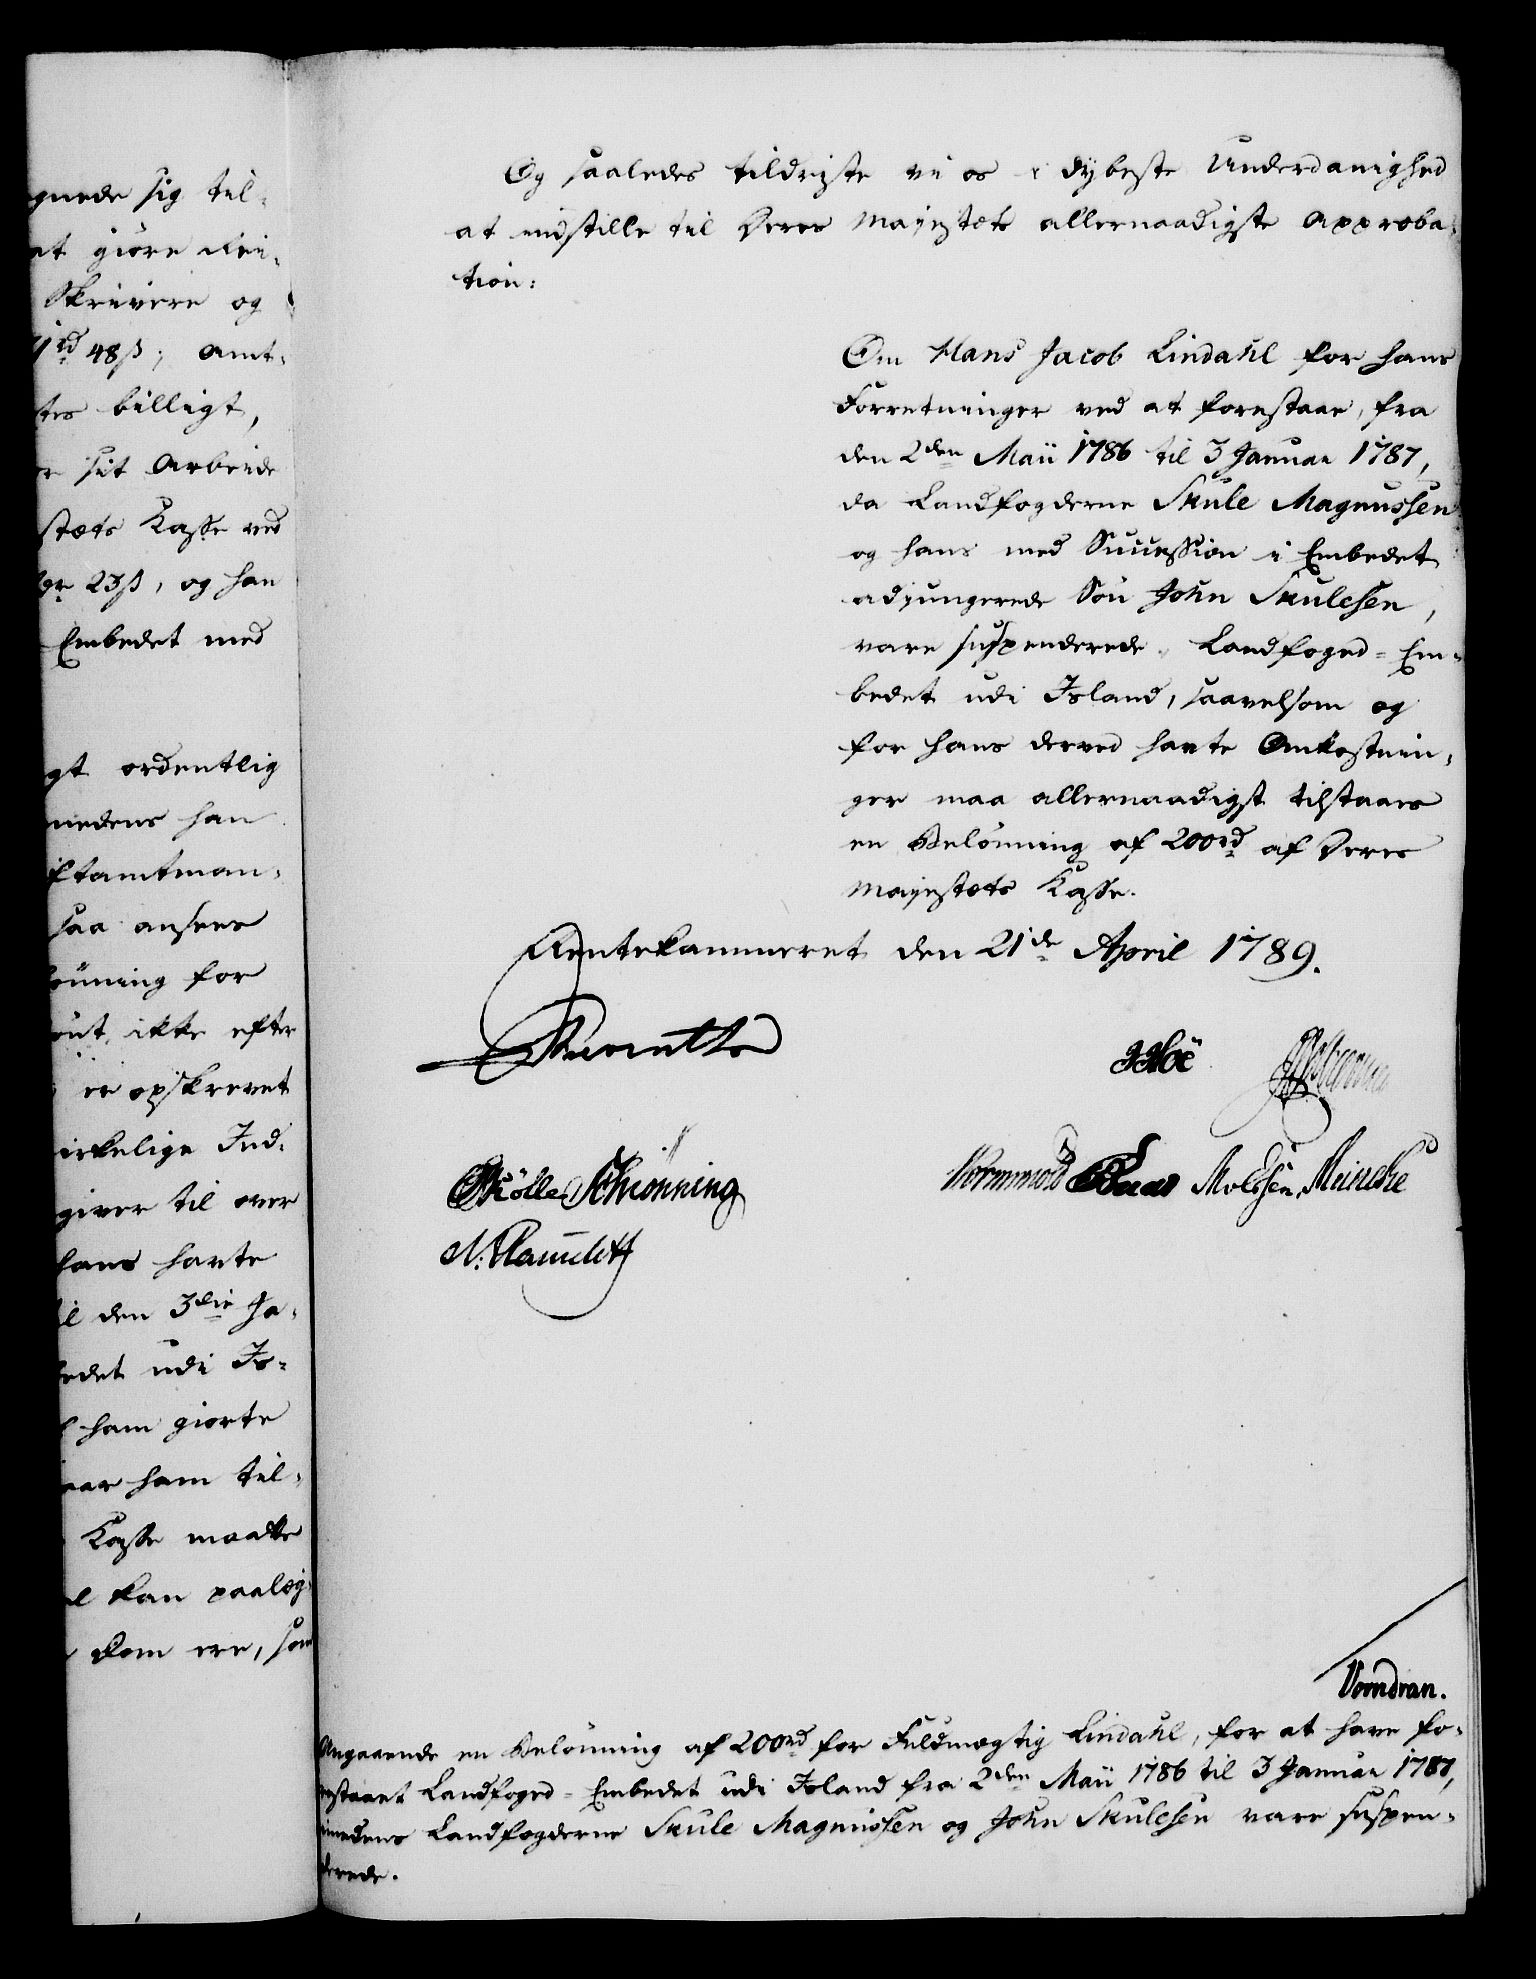 gnede sig til-
at giöre Rei-
Skrivere og
48 ß; Amt-
tes billigt,
sit Arbeide
stæts Kasse ved
23 ß, og han
Embedet med
gt ordentlig
medens han
ftamtman-
saa ansees
lönning for
önt, ikke efter
er opskrevet
irkelige Ind-
giver til over
hans havte
il den 3die Ja-
bedet udi Is-
ham giorte
aar ham til-
Kasse maatte
kan paalæg-
Dom ere, som
Og saaledes tildriste vi os i dybeste Underdanighed
at indstille til Deres Majestæts allernaadigste Approba-
tion:
Om Hans Jacob Lindahl for hans
Forretninger ved at forestaae, fra
den 2den Maii 1786 til 3 Januar 1787,
da Landfogderne Skule Magnussen
og hans med Succession i Embedet
adjungerede Sön John Skulesen,
vare suspenderede, Landfoged-Em-
bedet udi Island, saavelsom og
for hans derved havte Omkostnin-
ger maa allernaadigst tilstaaes
en Belönning af 200 rd af Deres
Majestæts Kasse.
Rentekammeret den 21de April 1789.
Hoë
Mölle Schiönning
Wormwold Baad Molssen Meincke
Vorndran.
Angaaende en Belönning af 200 rd for Fuldmægtig Lindahl, for at have fo-
restaaet Landfoged-Embedet udi Island fra 2den Maii 1786 til 3 Januar 1787,
imedens Landfogderne Skule Magnussen og John Skulesen vare suspen-
derede.